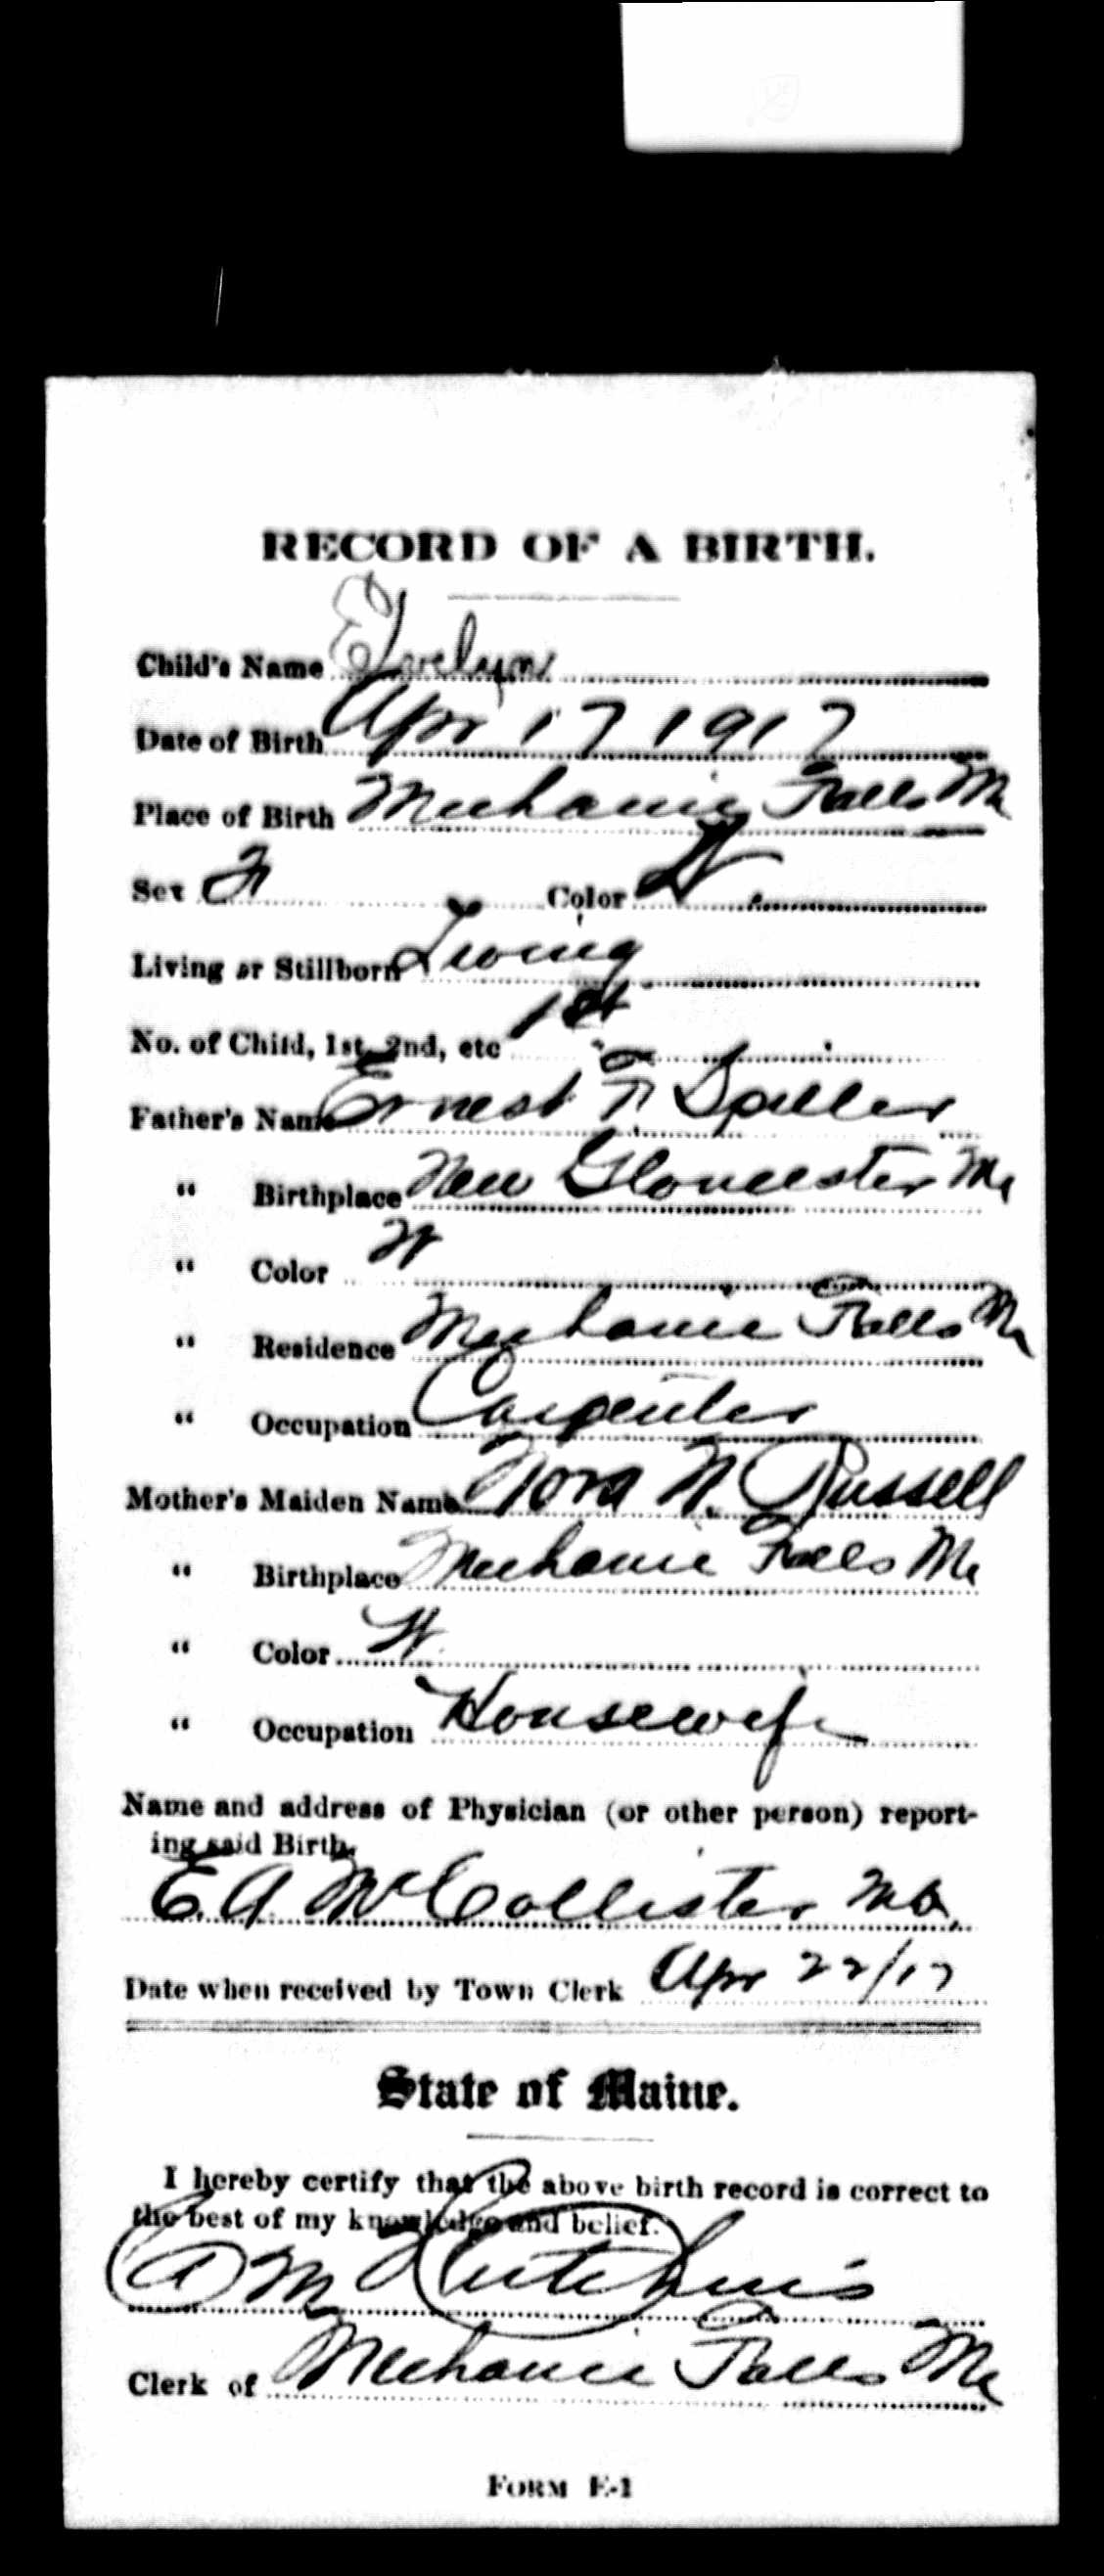 RECORD OF A BIRTH.
Child's Name Evelyn
Date of Birth Apr 17 1917
Place of Birth Mechanic Falls Me
Sex F Color W
Living or Stillborn Living
No. of Child, 1st, 2nd, etc 1st
Father's Name Ernest F.
" Birthplace New Gloucester Me
" Color W
" Residence Mechanic Falls Me
" Occupation Carpenter
Mother's Maiden Name Nora N. Russell
" Birthplace Mechanic Falls Me
" Color W
" Occupation Housewife
Name and address of Physician (or other person) report-
ing said Birth.
E. A. McCollister M.D.
Date when received by Town Clerk Apr 22/17
State of Maine.
I hereby certify that the above birth record is correct to
the best of my knowledge and belief.
A M Hutchins
Clerk of Mechanic Falls Me
FORM E-1